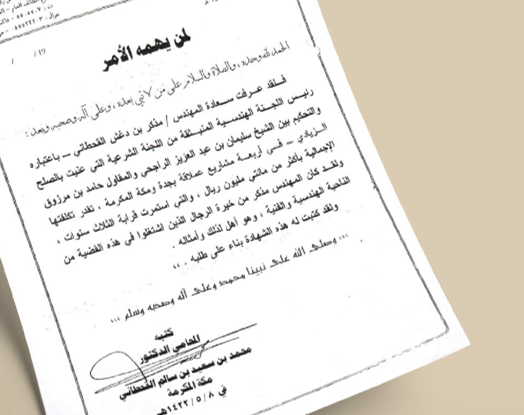 لمن يهمه الأمر
الحمد لله وحده ، والصلاة والسلام على من لا نبي بعده ، وعلى آله وصحبه وبعد :
فلقد عرفت سعادة المهندس / منكر بن دغش القحطاني ــ باعتباره
رئيس اللجنة الهندسية المنبثقة من اللجنة الشرعية التي عنيت بالصلح
والتحكيم بين الشيخ سليمان بن عبد العزيز الراجحي والمقاول حامد بن مرزوق
الزيادي ــ في أربعة مشاريع عملاقة بجدة ومكة المكرمة ، تقدر تكلفتها
الإجمالية بأكثر من مائتي مليون ريال ، والتي استمرت قرابة الثلاث سنوات ،
ولقد كان المهندس منكر من خيرة الرجال الذين اشتغلوا في هذه القضية من
الناحية الهندسية والفنية ، وهو أهل لذلك وأمثاله .
ولقد كتبت له هذه الشهادة بناء على طلبه . ،،
... وصلى الله على نبينا محمد وعلى آله وصحبه وسلم ...
كتبه
المحامي الدكتور
محمد بن سعيد بن سالم القحطاني
مكة المكرمة
في ١٤٢٢/٥/٨هـ